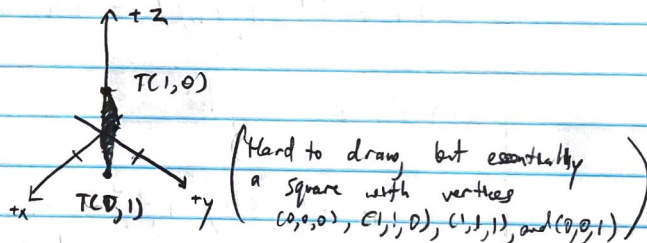 +z
T(1,0)
+x
T(0,1)
+y
(Hard to draw, but essentially
a square with vertices
(0,0,0), (1,1,0), (1,1,1), and (0,0,1))